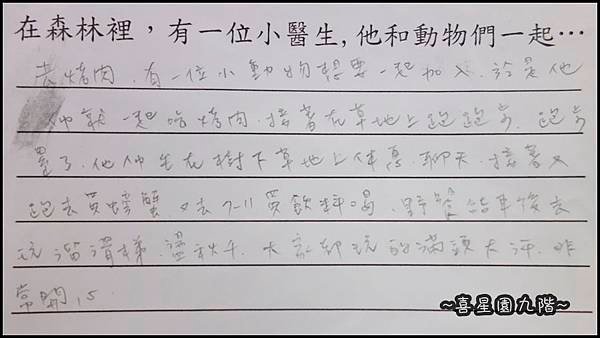 在森林裡，有一位小醫生,他和動物們一起…
去烤肉.有一位小動物想要一起加入.於是他
們就一起吃烤肉.接著在草地上跑跑步.跑步
累了.他們坐在樹下草地上休息.聊天.接著又
跑去買螃蟹.又去7-11買飲料喝.野餐結束後去
玩溜滑梯.盪秋千.大家都玩的滿頭大汗.非
常開心
~喜星園九階~